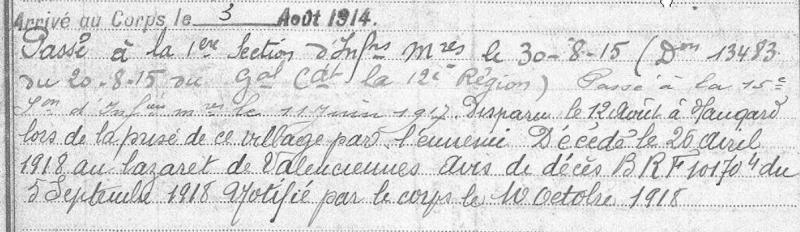 Arrivé au Corps le 3 Août 1914.
Passé à la 1ere Section d'Infrs Mres le 30-8-15 (Don 13483
du 20-8-15 du Gal Cdt la 12e Région) Passé à la 15e
Son d'Infien mres le 11 Juin 1917. Disparu le 12 Août à Hangard
lors de la prise de ce village par l'ennemi Décédé le 26 Avril
1918 au lazaret de Valenciennes avis de décès BRF 10170 du
5 Septembre 1918 Notifié par le corps le 10 Octobre 1918